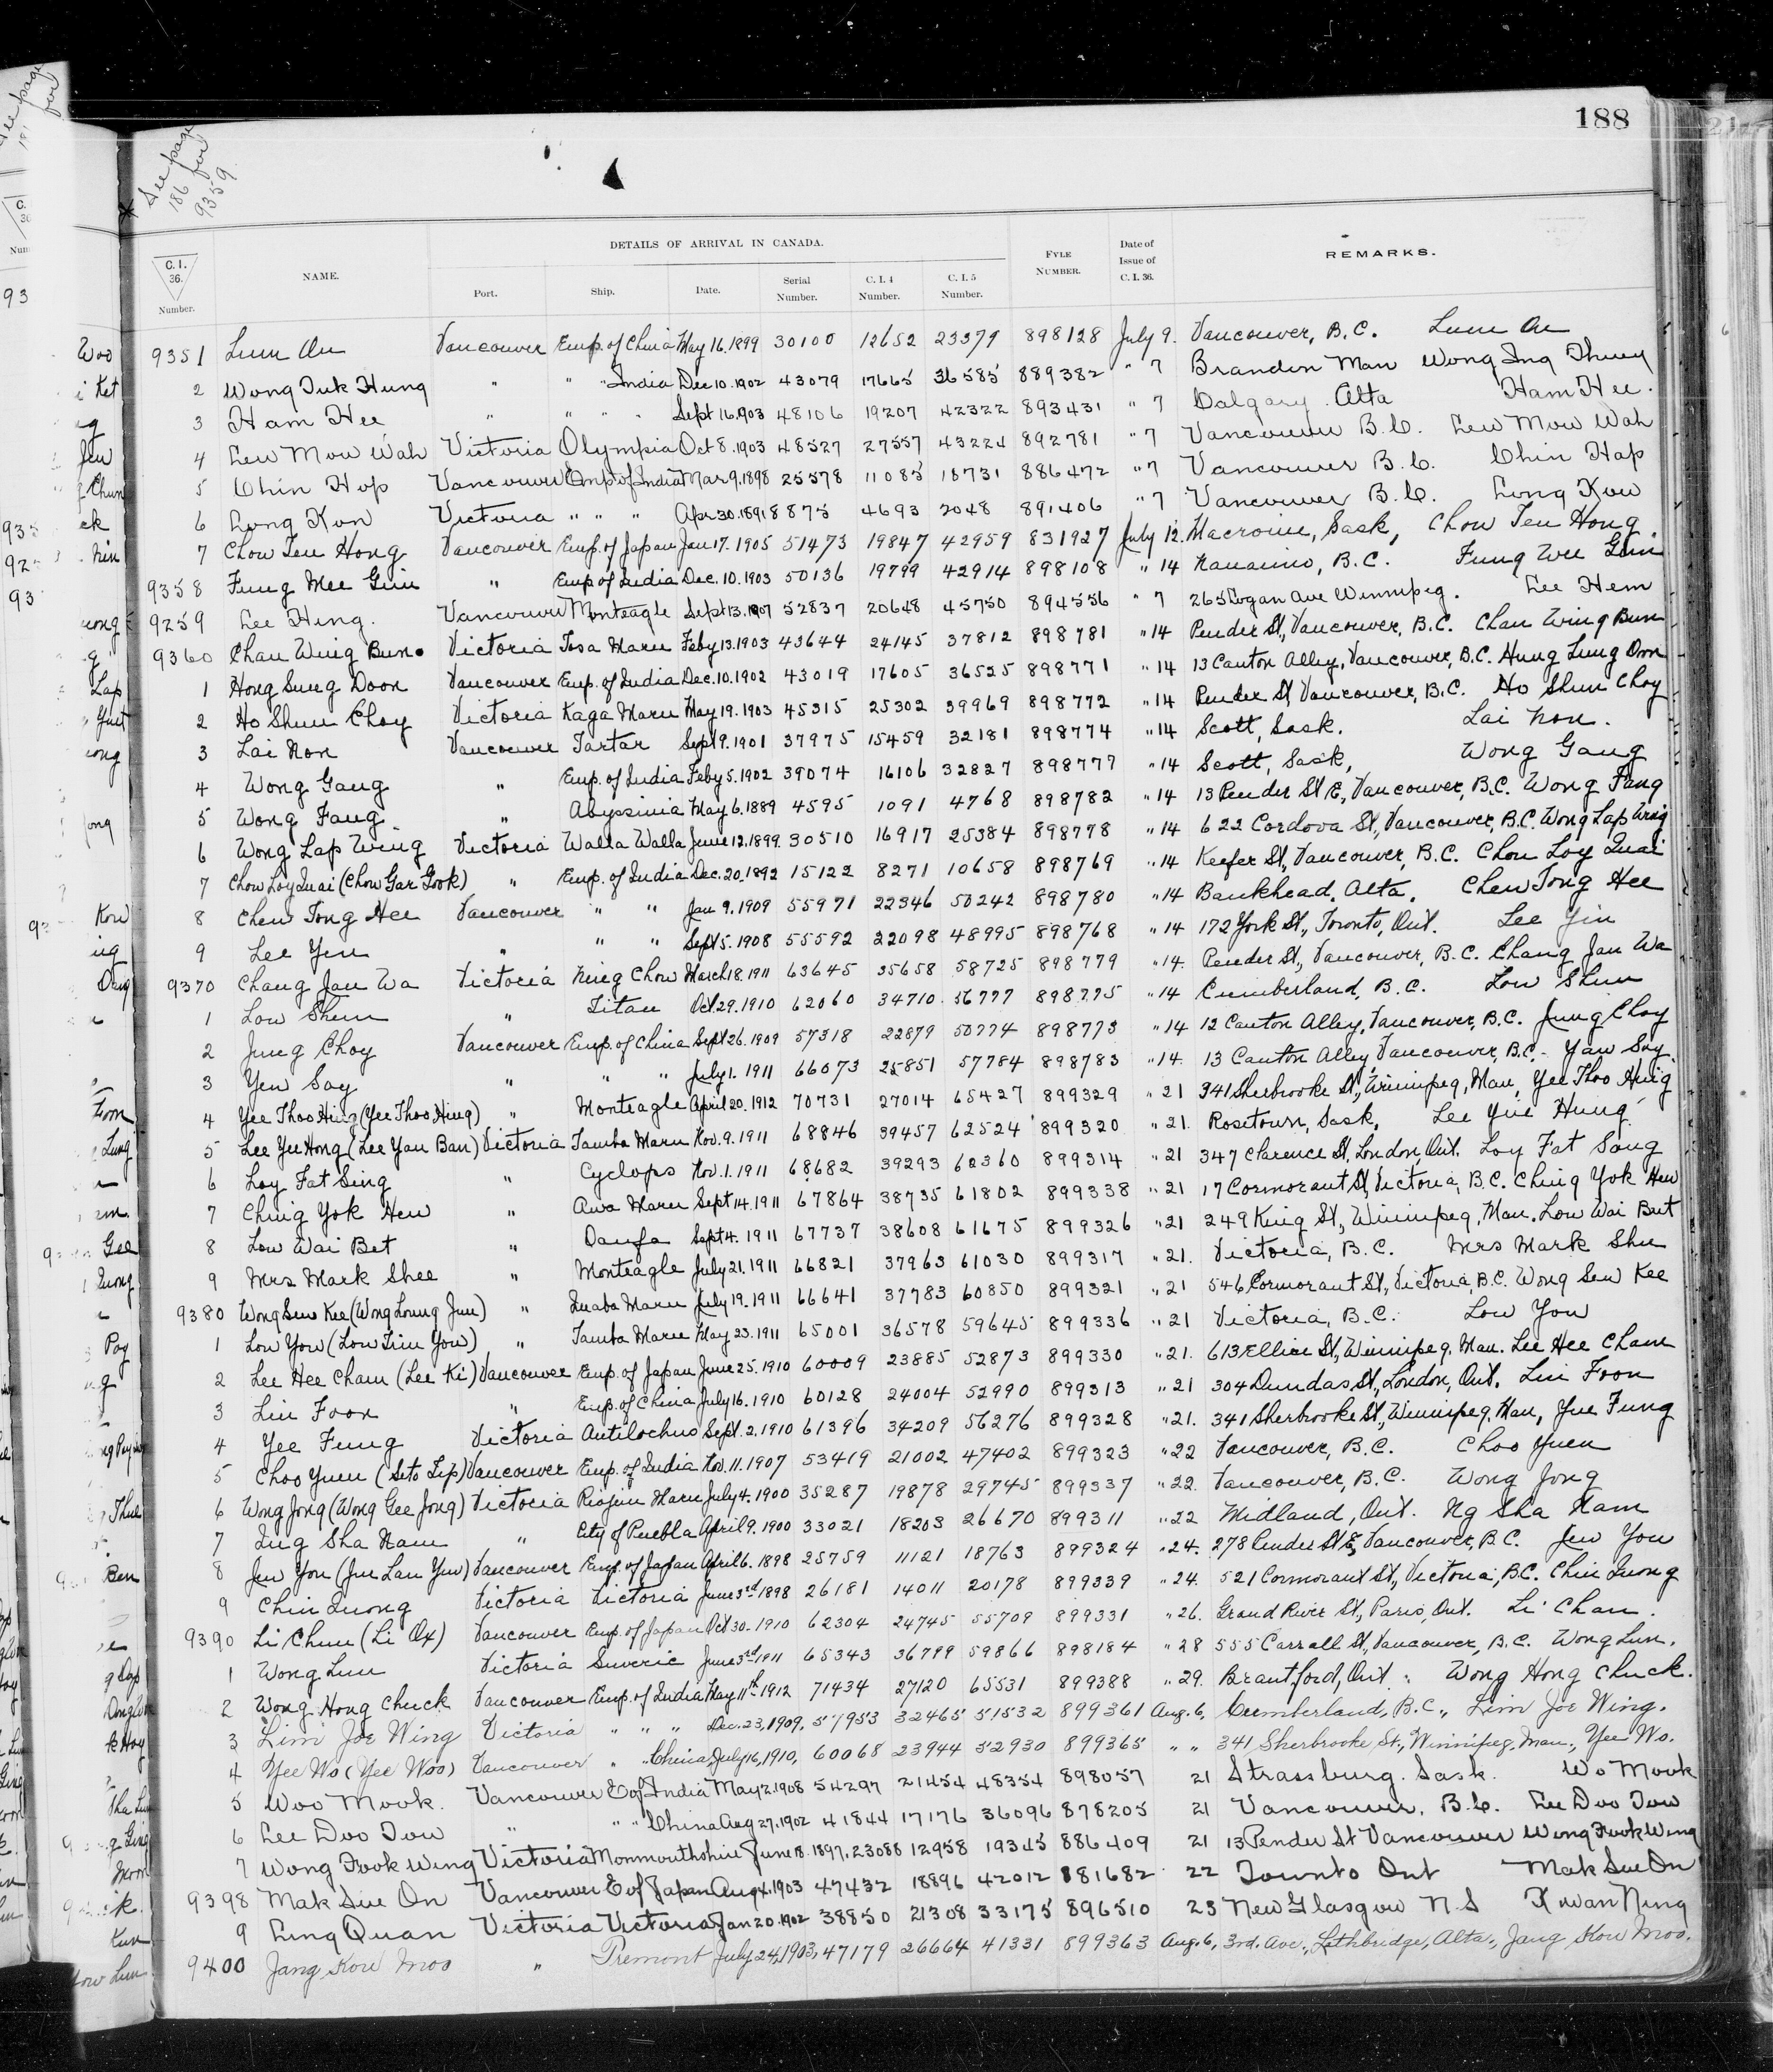 188
* See page
186 for
9359
DETAILS OF ARRIVAL IN CANADA.
C. I. 36. Number. NAME. Port. Ship. Date. Serial Number. C. I. 4 Number. C. I. 5 Number. FYLE NUMBER. Date of Issue of C. I. 36. REMARKS.
9351 Lum On Vancouver Emp. of China May 16. 1899 30100 12652 23379 898128 July 9. Vancouver, B.C. Lum On
2 Wong Tuk Hung " " " India Dec 10. 1902 43079 17665 36585 889382 " 7 Brandon Man Wong Ing Thuey
3 Ham Hee " " " " Sept 16. 903 48106 19207 42322 893431 " 7 Calgary Alta Ham Hee.
4 Lew Mow Wah Victoria Olympia Oct 8. 1903 48527 27557 43224 892781 " 7 Vancouver B.C. Lew Mow Wah
5 Chin Hop Vancouver Emp of India Mar 9. 1898 25578 11085 18731 886472 " 7 Vancouver B.C. Chin Hap
6 Lung Kow Victoria " " " Apr 30. 1891 8875 4693 2048 891406 " 7 Vancouver B.C. Lung Kow
7 Chow Ten Hong Vancouver Emp. of Japan Jan 17. 1905 51473 19847 42959 831927 July 12. Macrorie, Sask, Chow Ten Hong
9358 Fung Mee Guin " Emp of India Dec. 10. 1903 50136 19799 42914 898108 " 14 Nanaimo, B.C. Fung Wee Guin
9259 Lee Hing. Vancouver Monteagle Sept 13. 1907 52837 20648 45750 894556 " 7 265 Logan Ave Winnipeg. Lee Hem
9360 Chau Wing Bun Victoria Tosa Maru Feby 13. 1903 43644 24145 37812 898781 " 14 Pender St, Vancouver, B.C. Chau Wing Bun
1 Hong Sung Doon Vancouver Emp. of India Dec. 10. 1902 43019 17605 36525 898771 " 14 13 Canton Alley, Vancouver, B.C. Hung Sung Doon
2 Ho Shun Choy Victoria Kaga Maru May 19. 1903 45315 25302 39969 898772 " 14 Pender St, Vancouver, B.C. Ho Shun Choy
3 Lai Non Vancouver Tartar Sept 9. 1901 37975 15459 32181 898774 " 14 Scott, Sask. Lai Non.
4 Wong Gang " Emp. of India Feby 5. 1902 39074 16106 32827 898777 " 14 Scott, Sask, Wong Gang
5 Wong Fang " Abyssinia May 6. 1889 4595 1091 4768 898782 " 14 13 Pender St E, Vancouver, B.C. Wong Fang
6 Wong Lap Wing Victoria Walla Walla June 12. 1899. 30510 16917 25384 898778 " 14 622 Cordova St, Vancouver, B.C. Wong Lap Wing
7 Chow Loy Quai (Chow Gar Gook) " Emp. of India Dec. 20. 1892 15122 8271 10658 898769 " 14 Keefer St, Vancouver, B.C. Chou Loy Quai
8 Chew Tong Hee Vancouver " " Jan 9. 1909 55971 22346 50242 898780 " 14 Bankhead. Alta. Chew Tong Hee
9 Lee Yen " " " Sept 5. 1908 55592 22098 48995 898768 " 14 172 York St., Toronto, Ont. Lee Yin
9370 Chang Jan Wa Victoria Ning Chow March 18. 1911 63645 35658 58725 898779 " 14. Pender St., Vancouver, B.C. Chang Jan Wa
1 Low Shum " Titan Oct. 29. 1910 62060 34710 56777 898775 " 14 Cumberland, B.C. Low Shum
2 Jung Choy Vancouver Emp. of China Sept 26. 1909 57318 22879 50774 898773 " 14 12 Canton Alley, Vancouver, B.C. Jung Choy
3 Yew Say " " " July 1. 1911 66073 25851 57784 898783 " 14. 13 Canton Alley Vancouver, B.C. Yaw Say.
4 Yee Thoo Hing (Yee Thoo Hing) " Monteagle April 20. 1912 70731 27014 65427 899329 " 21 341 Sherbrooke St, Winnipeg, Man, Yee Thoo Hing
5 Lee Yee Hong (Lee Yau Ban) Victoria Tamba Maru Nov. 9. 1911 68846 39457 62524 899320 " 21. Rosetown, Sask, Lee Yue Hung
6 Loy Fat Sing " Cyclops Nov. 1. 1911 68682 39293 62360 899314 " 21 347 Clarence St, London, Ont. Loy Fat Song
7 Ching Yok Hew " Awa Maru Sept 14. 1911 67864 38735 61802 899338 " 21 17 Cormorant St, Victoria, B.C. Ching Yok Hew
8 Low Wai Bet " Oanfa Sept 4. 1911 67737 38608 61675 899326 " 21 249 King St., Winnipeg, Man. Low Wai But
9 Mrs Mark Shee " Monteagle July 21. 1911 66821 37963 61030 899317 " 21. Victoria, B.C. Mrs Mark Shu
9380 Wong Sew Kee (Wong Loung Jun) " Inaba Maru July 19. 1911 66641 37783 60850 899321 " 21 546 Cormorant St., Victoria, B.C. Wong Sew Kee
1 Low You (Low Tim You) " Tamba Maru May 23. 1911 65001 36578 59645 899336 " 21 Victoria, B.C. Low You
2 Lee Hee Cham (Lee Ki) Vancouver Emp. of Japan June 25. 1910 60009 23885 52873 899330 " 21. 613 Ellice St, Winnipeg. Man. Lee Hee Cham
3 Lin Foon " Emp. of China July 16. 1910 60128 24004 52990 899313 " 21 304 Dundas St, London, Ont. Lin Foon
4 Yee Fung Victoria Antilochus Sept. 2. 1910 61396 34209 56276 899328 " 21. 341 Sherbrooke St., Winnipeg. Man, Yue Fung
5 Choo Yuen (Seto Lip) Vancouver Emp. of India Nov. 11. 1907 53419 21002 47402 899323 " 22 Vancouver, B.C. Choo Yuen
6 Wong Jong (Wong Gee Jong) Victoria Riojun Maru July 4. 1900 35287 19878 29745 899337 " 22. Vancouver, B.C. Wong Jong
7 Ing Sha Nam " City of Puebla April 9. 1900 33021 18203 26670 899311 " 22 Midland, Ont. Ng Sha Nam
8 Jew You (Jue Lan Yuw) Vancouver Emp. of Japan April 6. 1898 25759 11121 18763 899324 " 24. 278 Pender St E, Vancouver, B.C. Jew You
9 Chin Quong Victoria Victoria June 3rd 1898 26181 14011 20178 899339 " 24. 521 Cormorant St., Victoria, B.C. Chin Quong
9390 Li Chun (Li Ox) Vancouver Emp. of Japan Oct 30. 1910 62304 24745 55709 899331 " 26. Grand River St, Paris, Ont. Li Chan.
1 Wong Lun Victoria Suveric June 3rd 1911 65343 36799 59866 898184 " 28 555 Carrall St., Vancouver, B.C. Wong Lun.
2 Wong Hong Chuck Vancouver Emp. of India May 11th 1912 71434 27120 65531 899388 " 29. Brantford, Ont. Wong Hong Chuck.
3 Lim Joe Wing Victoria " " " Dec. 23, 1909, 57953 32465 51532 899361 Aug. 6, Cumberland, B.C., Lim Joe Wing.
4 Yee Wo (Yee Woo) Vancouver " " China, July 16, 1910, 60068 23944 52930 899365 " " 341 Sherbrooke St., Winnipeg, Man., Yee Wo.
5 Woo Mook. Vancouver E of India May 2. 1908 54297 21454 48354 898057 21 Strassburg. Sask. Wo Mook
6 Lee Doo Tow " " " China Aug 27. 1902 41844 17176 36096 878205 21 Vancouver, B.C. Lee Doo Tow
7 Wong Fook Wing Victoria Monmouthshire June 18. 1897. 23088 12958 19345 886409 21 13 Pender St Vancouver Wong Fook Wing
9398 Mak Sue On Vancouver E of Japan Aug 4. 1903 47432 18896 42012 881682 22 Toronto Ont Mak Sue On
9 Ling Quan Victoria Victoria Jan 20. 1902 38850 21308 33175 896510 23 New Glasgow N.S Kwan Ning
9400 Jang Kow Moo " Premont July 24, 1903, 47179 26664 41331 899363 Aug. 6, 3rd. Ave., Lethbridge, Alta., Jang Kow Moo.